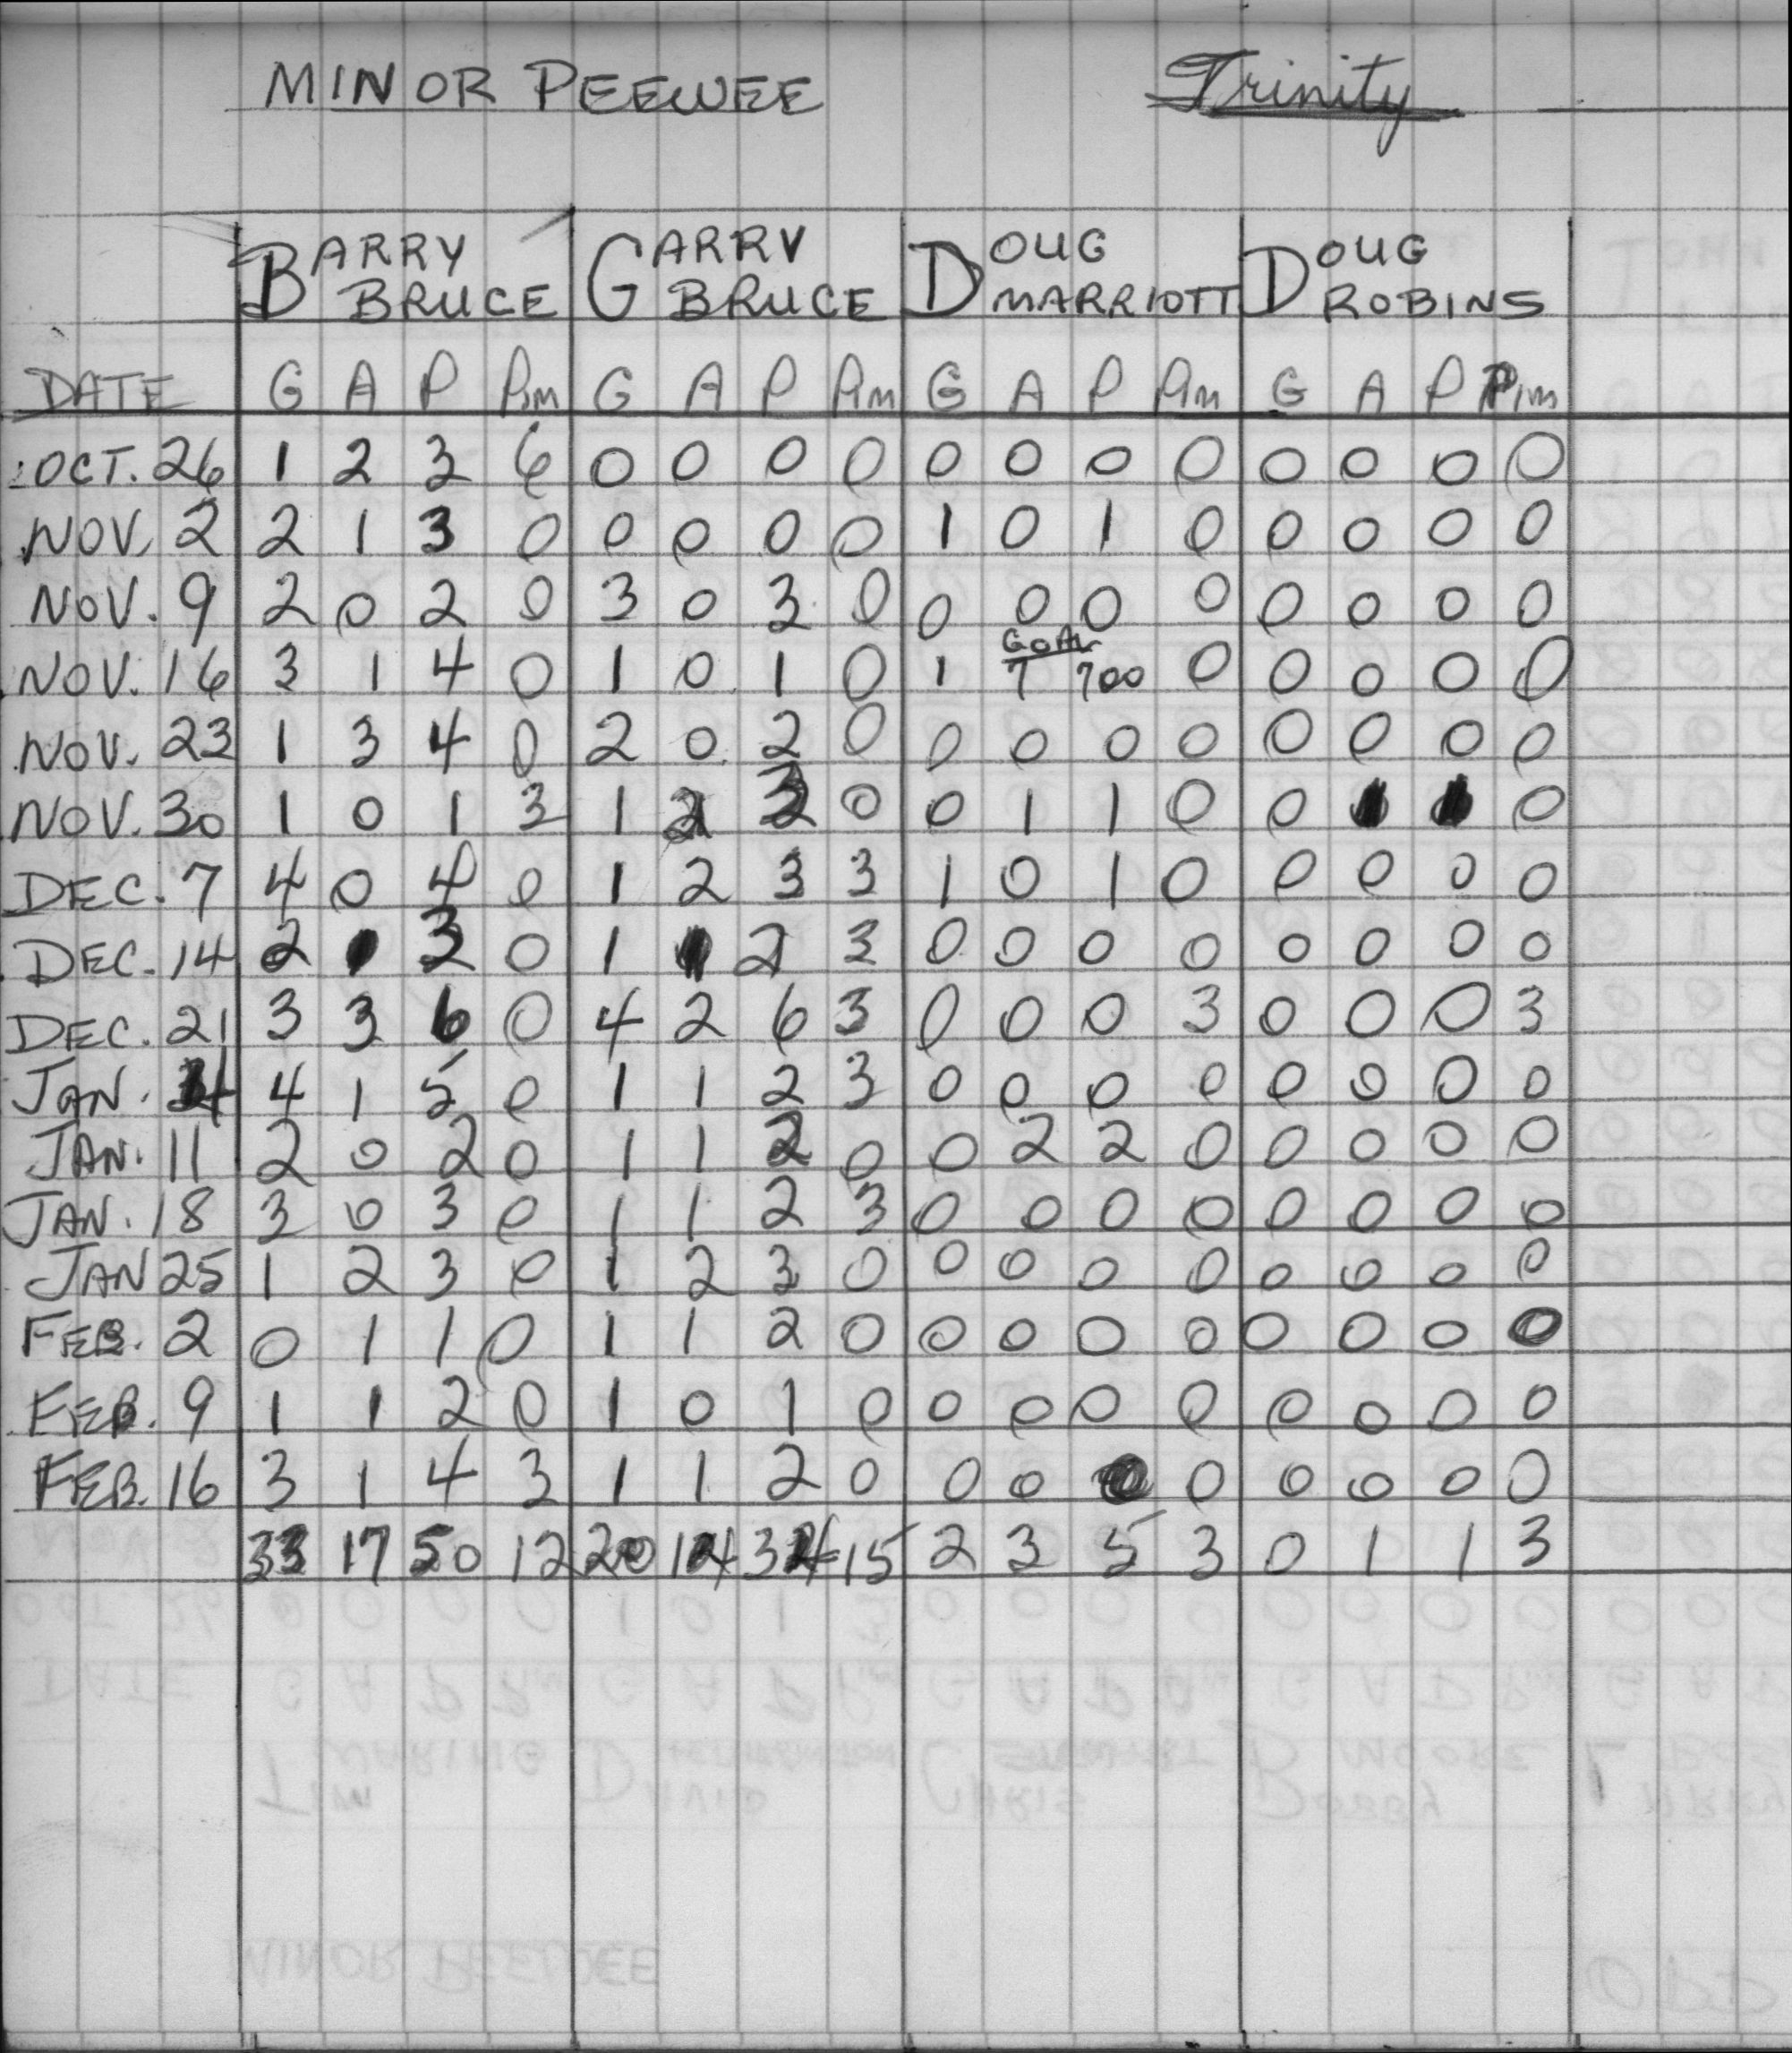 MINOR PEEWEE Trinity
BARRY BRUCE GARRY BRUCE DOUG MARRIOTT DOUG ROBINS
DATE G A P Pim G A P Pim G A P Pim G A P Pim
OCT. 26 1 2 3 6 0 0 0 0 0 0 0 0 0 0 0 0
NOV. 2 2 1 3 0 0 0 0 0 1 0 1 0 0 0 0 0
NOV. 9 2 0 2 0 3 0 3 0 0 0 0 0 0 0 0 0
GOAL
NOV. 16 3 1 4 0 1 0 1 0 1 7 700 0 0 0 0 0
NOV. 23 1 3 4 0 2 0 2 0 0 0 0 0 0 0 0 0
NOV. 30 1 0 1 3 1 2 3 0 0 1 1 0 0 1 1 0
DEC. 7 4 0 4 0 1 2 3 3 1 0 1 0 0 0 0 0
DEC. 14 2 1 3 0 1 1 2 3 0 0 0 0 0 0 0 0
DEC. 21 3 3 6 0 4 2 6 3 0 0 0 3 0 0 0 3
JAN. 4 4 1 5 0 1 1 2 3 0 0 0 0 0 0 0 0
JAN. 11 2 0 2 0 1 1 2 0 0 2 2 0 0 0 0 0
JAN. 18 3 0 3 0 1 1 2 3 0 0 0 0 0 0 0 0
JAN 25 1 2 3 0 1 2 3 0 0 0 0 0 0 0 0 0
FEB. 2 0 1 1 0 1 1 2 0 0 0 0 0 0 0 0 0
FEB. 9 1 1 2 0 1 0 1 0 0 0 0 0 0 0 0 0
FEB. 16 3 1 4 3 1 1 2 0 0 0 0 0 0 0 0 0
33 17 50 12 20 14 34 15 2 3 5 3 0 1 1 3